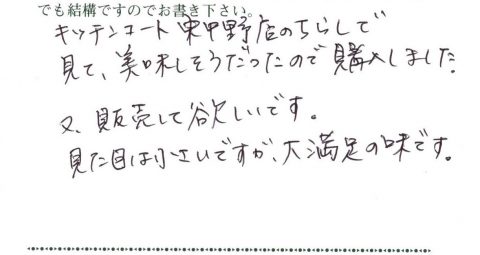 でも結構ですのでお書き下さい。
キッチンコート東中野店のちらしで
見て、美味しそうだったので購入しました。
又、販売して欲しいです。
見た目は小さいですが、大満足の味です。